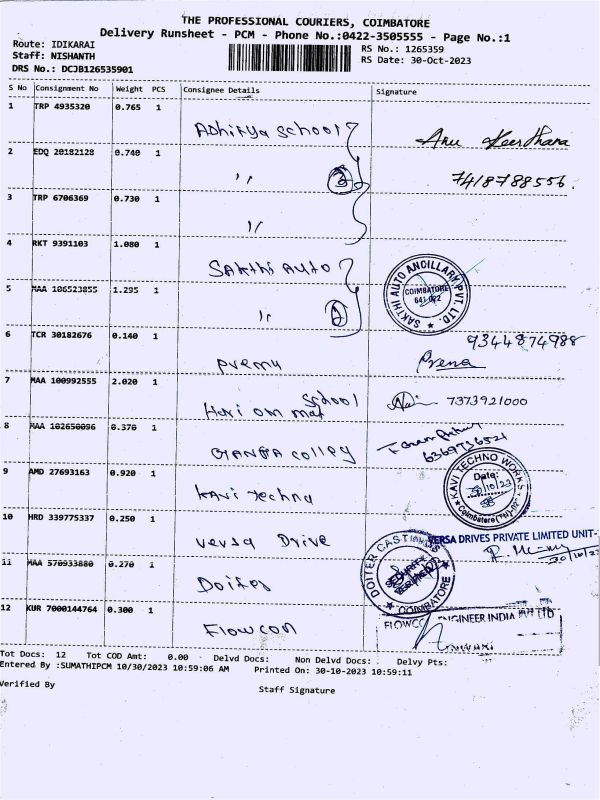 THE PROFESSIONAL COURIERS, COIMBATORE
Delivery Runsheet - PCM - Phone No.:0422-3505555 - Page No.:1
Route: IDIKARAI
RS No.: 1265359
Staff: NISHANTH
RS Date: 30-Oct-2023
DRS No.: DCJB126535901
S No Consignment No Weight PCS Consignee Details Signature
1 TRP 4935320 0.765 1
Adhitya School
2 EDQ 20182128 0.740 1
,, 3 7418788556.
3 TRP 6706369 0.730 1
,,
4 RKT 9391103 1.080 1
Sakthi Auto
SAKTHI AUTO ANCILLARY PVT. LTD.
COIMBATORE
641 022
5 MAA 106523855 1.295 1
,, 2
6 TCR 30182676 0.140 1
9344874988
Prema Prema
7 MAA 100992555 2.020 1
School
Hari om mat 7373921000
8 MAA 102650096 0.370 1
6369736521
GANGA colley
9 AMD 27693163 0.920 1
kavi techno
KAVI TECHNO WORKS
Date:
30/10/23
Coimbatore
10 HRD 339775337 0.250 1
versa Drive
VERSA DRIVES PRIVATE LIMITED UNIT-
11 MAA 570933880 0.270 1
Doiter
DOITER CASTINGS
SECURITY
COIMBATORE
12 KUR 7000144764 0.300 1
Flowcon
FLOWCO ENGINEER INDIA PVT LTD
Tot Docs: 12 Tot COD Amt: 0.00 Delvd Docs: Non Delvd Docs: Delvy Pts:
Entered By :SUMATHIPCM 10/30/2023 10:59:06 AM Printed On: 30-10-2023 10:59:11
Verified By
Staff Signature